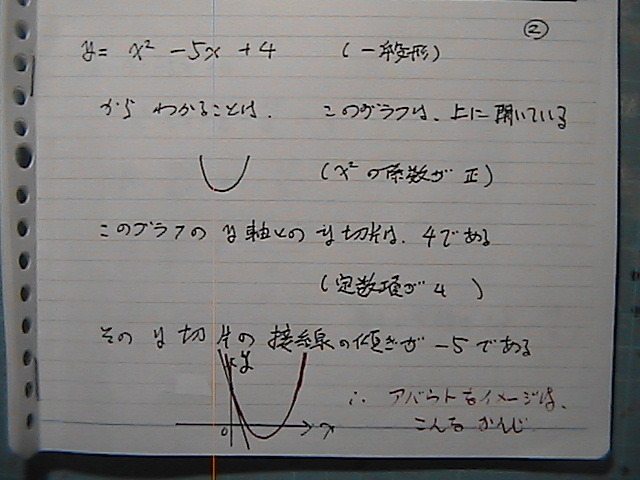 ②
y = x² - 5x + 4 (一般形)
から わかることは、 このグラフは、上に開いている
(x² の係数が 正)
このグラフの y軸との y切片は、4である
(定数項が 4 )
その y切片の接線の傾きが -5である
y
∴ アバウトなイメージは、
0 x
こんな かんじ